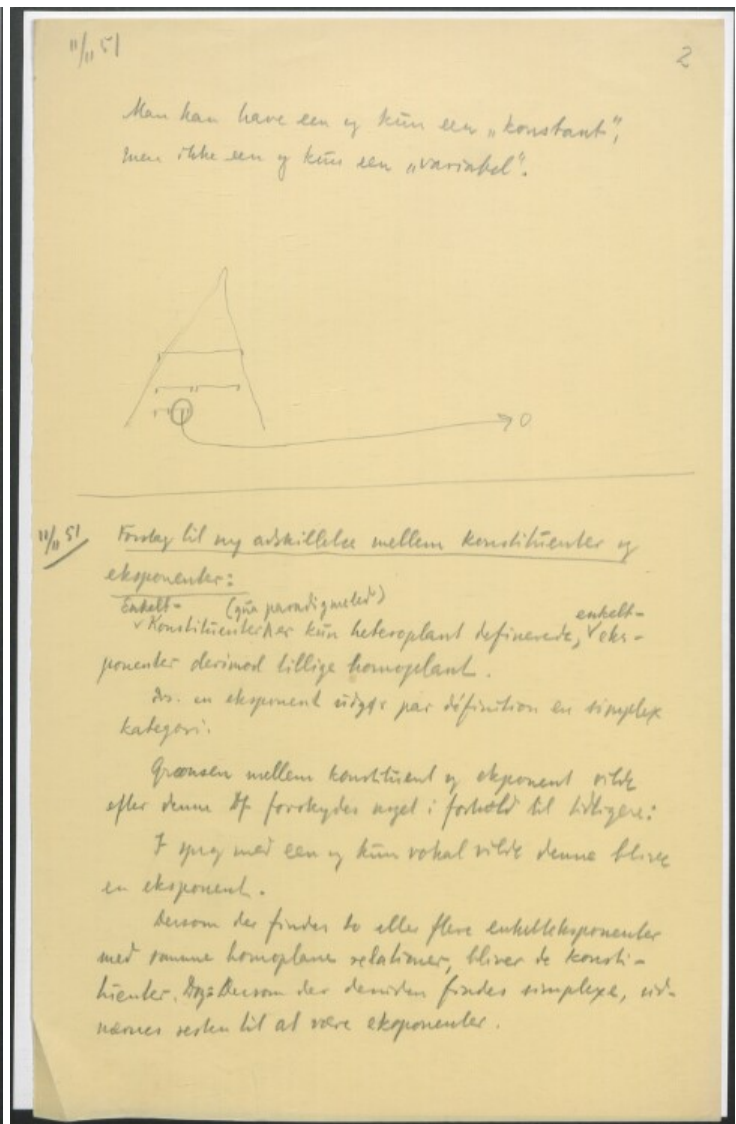 11/11 51
2
Man kan have een og kun een „konstant“,
men ikke een og kun een „variabel“.
0
11/11 51 Forslag til ny adskillelse mellem konstituenter og
eksponenter:
Enkelt- (qua paradigmeled) enkelt-
Konstituenter er kun heteroplant definerede, eks-
ponenter derimod tillige homoplant.
en eksponent udgør par définition en simplex
kategori.
Grænsen mellem konstituent og eksponent vilde
efter denne Df forskydes noget i forhold til tidligere:
I sprog med een og kun vokal vilde denne blive
en eksponent.
Dersom der findes to eller flere enkelteksponenter
med samme homoplane relationer, bliver de konsti-
tuenter. Dersom der desuden findes simplexe, ud-
nævnes resten til at være eksponenter.